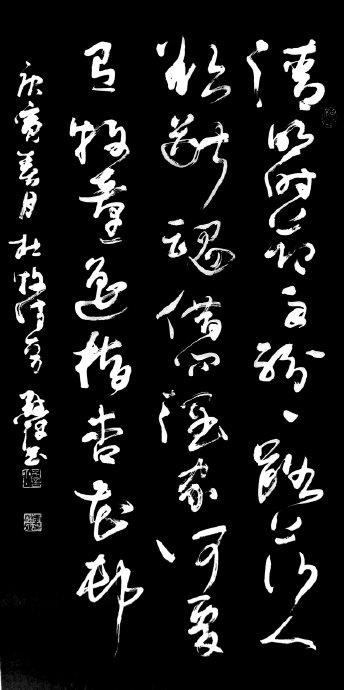 清明時節雨紛紛路上行人
欲斷魂借問酒家何處
有牧童遥指杏花村
庚寅 月杜牧詩 書